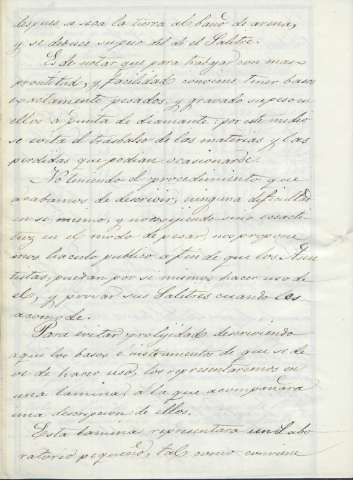 despues se seca la tierra al baño de arena,
y se deduce su peso del de el Salitre.
Es de notar que para trabajar con mas
prontitud, y facilidad conviene tener bases
exactamente pesados, y gravado su peso en
ellos a punta de diamante: por este medio
se evita el trasbordar de las materias y las
perdidas que podian ocasionarse.
No teniendo el procedimiento que
acabamos de descrivir, ninguna dificultad
en si mismo, y no exijiendo sino exacti-
tud en el modo de pesar, nos propone
mos hacerlo publico a fin de que los Asen
tistas, puedan por si mismos hacer uso de
el, y provar sus Salitres cuando les
acomode.
Para evitar prolijidad describiendo
aqui los bases e instrumentos de que se de
ve de hacer uso, los representaremos en
una lamina, a la que acompañara
una descripcion de ellos.
Esta lamina representara un Labo
ratorio pequeño, tal como conviene